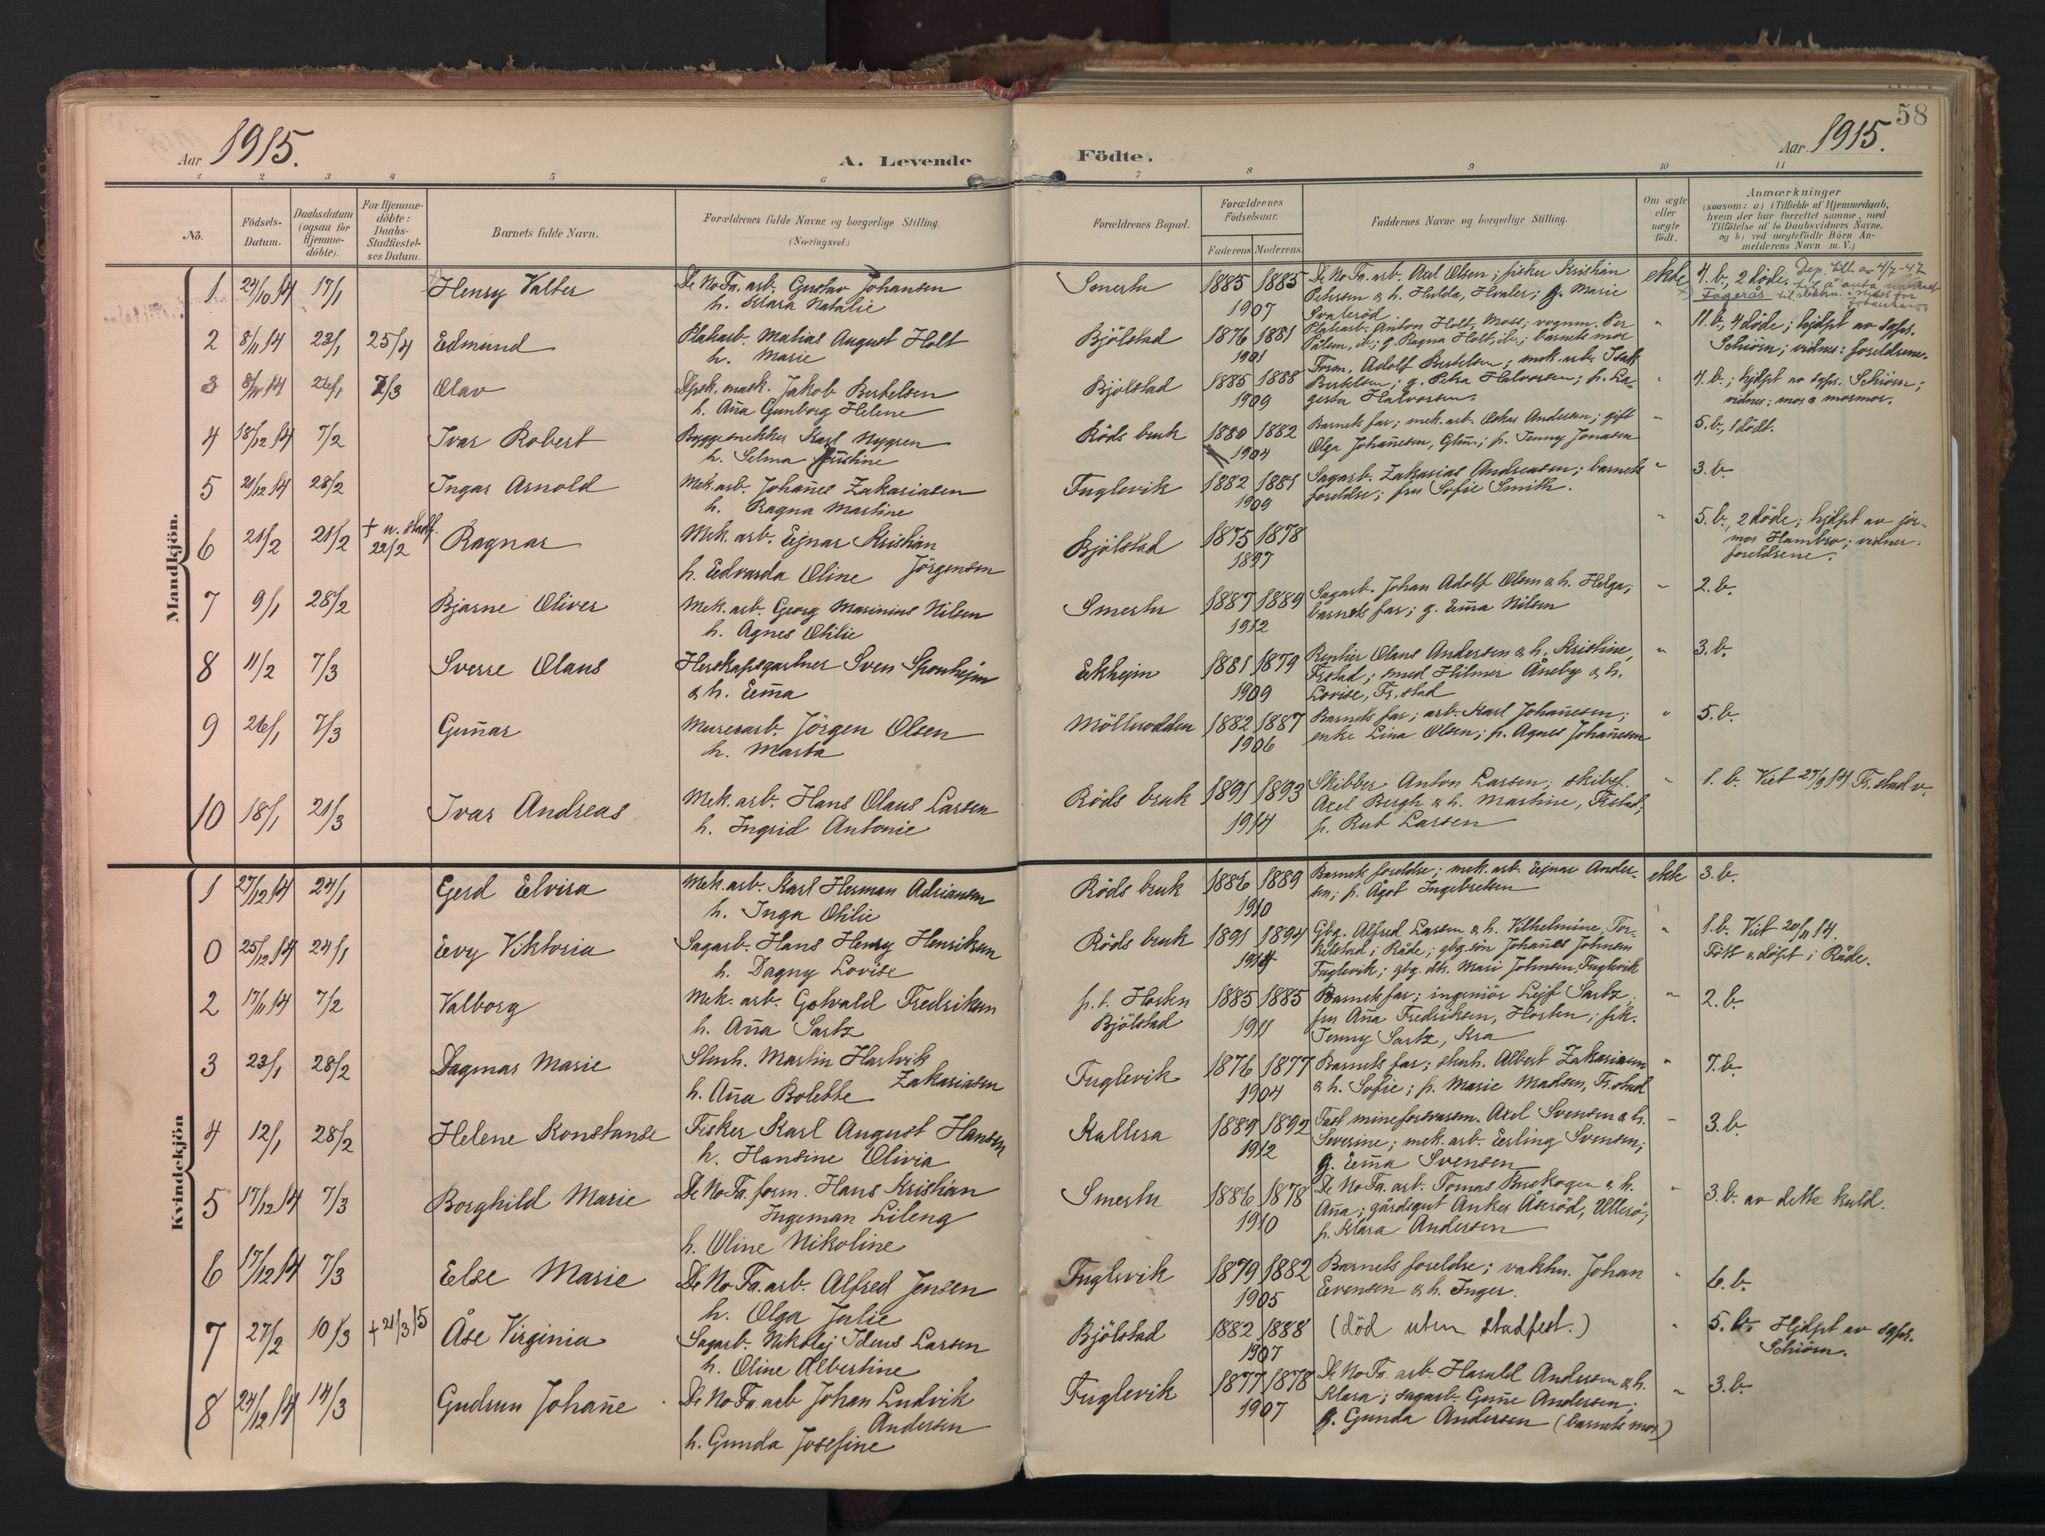 58
Aar 1915. A. Levende Födte. Aar 1915.
1 2 3 4 5 6 7 8 9 10 11
No. Födsels-Datum. Daabsdatum (ogsaa for Hjemmedöbte). For Hjemmedöbte: Daabs-Stadfæstelses Datum. Barnets fulde Navn. Forældrenes fulde Navne og borgerlige Stilling. (Næringsvei.) Forældrenes Bopæl. Forældrenes Födselsaar. Faderens Moderens Faddernes Navne og borgerlige Stilling. Om ægte eller uægte födt. Anmærkninger
(saasom: a) i Tilfælde af Hjemmedaab, hvem der har forrettet samme, med Tilföielse af to Daabsvidners Navne. og b) ved uægtefödte Börn Anmelderens Navn m. V.)
Mandkjön.
1 24/10 14 17/1 Henry Valter De No Fa. arb. Gustav Johansen
h. Klara Natalie
Smertu 1885 1885 1907
De No Fa. arb. Axel Olsen; fisker Kristian
Petersen & h. Hulda, Hvaler; g. Marie
Svalerød
ekte 4. b., 2 døde. Dep. till. av 4/7-47
Fagerås
2 8/11 14 23/1 25/4 Edmund Platearb. Matias August Holt
h. Marie
Bjölstad 1876 1881 1901
Platearb. Anton Holt, Moss; vognm. Per
Pålsen, ib.; g. Ragna Holt, ib.; barnets mor
" 11. b., 4 døde; hjdpt av sgps.
Schiørn; vidner: foreldrene.
3 8/11 14 26/1 7/3 Olav Dpsk. mask. Jakob Bertelsen
h. Aña Gunborg Helene
Bjölstad 1885 1888 1909
Form. Adolf Bertelsen; mek. arb. Isak
Bertelsen; g. Petra Halvorsen; p. La-
gerta Halvorsen.
" 4. b.; hjdpt av sgps. Schiørn;
vidner: mor & mormor.
4 18/12 14 7/2 Ivar Robert Byggesnekker Karl Nygren
h. Selma Justine
Röds bruk 1880 1882 1904
Barnets far; mek. arb. Oskar Andersen; gift
Olga Johañesen, Glm.; p. Jenny Jonasen
" 5. b., 1 dödt.
5 21/12 14 28/2 Ingar Arnold Mek. arb. Johañes Zakariasen
h. Ragna Martine
Fuglevik 1882 1881 1909
Sagarb. Zakarias Andreasen; barnets
foreldre; fru Sofie Smith.
" 3. b.
6 21/2 21/2 + u. stadf. 22/2 Ragnar Mek. arb. Ejnar Kristian
Jörgensen
h. Edvarda Oline
Bjölstad 1875 1878 1897
" 5. b., 2 döde; hjdpt av jor-
mor Hambro; vidner:
foreldrene.
7 9/1 28/2 Bjarne Oliver Mek. arb. Georg Marinius Nilsen
h. Agnes Otilie
Smertu 1887 1889 1912
Sagarb. Johan Adolf Olsen & h. Helga;
barnets far; g. Ema Nilsen
" 2. b.
8 11/2 7/3 Sverre Olaus Herskapsgartner Sven Sponhejm
& h. Ema
Ekhejm 1881 1879 1909
Rentier Olaus Andersen & h. Kristine,
Fr.stad; smed Hilmer Åneby & h.
Lovise, Fr.stad
" 3. b.
9 26/1 7/3 Guñar Murerarb. Jörgen Olsen
h. Marta
Mölleodden 1882 1887 1906
Barnets far; arb. Karl Johañesen;
enke Lina Olsen; p. Agnes Johañesen
" 5. b.
10 18/1 21/3 Ivar Andreas Mek. arb. Hans Olaus Larsen
h. Ingrid Antonie
Röds bruk 1891 1893 1914
Skibber Anton Larsen; skibsf.
Axel Bergh & h. Martine, Fr.stad;
p. Rut Larsen
" 1. b. Viet 27/9 14 Fr.stad v.
Kvindekjön
1 27/12 14 24/1 Gerd Elvira Mek. arb. Karl Herman Adriansen
h. Inga Otilie
Röds bruk 1886 1889 1910
Barnets foreldre; mek. arb. Ejnar Ander-
sen; p. Ågot Ingebretsen
ekte 3. b.
0 25/12 14 24/1 Evy Viktoria Sagarb. Hans Henry Henriksen
h. Dagny Lovise
Röds bruk 1891 1894 1914
Gbg. Alfred Larsen & h. Vilhelmine, Tor-
kelstad, i Råde; gbg. sön Johañes Johnsen
Fuglevik; gbg. dtr. Mari Johnsen, Fuglevik
" 1. b. Viet 20/11 14.
Föt & döpt i Råde.
2 17/11 14 7/2 Valborg Mek. arb. Gotvald Fredriksen
h. Aña Sartz
p.t. Horten
Bjölstad 1885 1885 1911
Barnets far; ingeniör Lejf Sartz;
fru Aña Fredriksen, Horten; frk.
Jenny Sartz, Kra
" 2. b.
3 23/1 28/2 Dagmar Marie Stenh. Martin Hartvik
Zakariasen
h. Aña Bolette
Fuglevik 1876 1877 1904
Barnets far; stenh. Albert Zakariasen
& h. Sofie; p. Marie Madsen, Fr.stad
" 7. b.
4 12/1 28/2 Helene Konstanse Fisker Karl August Hansen
h. Hansine Olivia
Kallera 1889 1892 1912
Fast mineforsvarsm. Axel Svensen & h.
Severine; mek. arb. Erling Svensen;
g. Ema Svensen
" 3. b.
5 17/12 14 7/3 Borghild Marie De No Fa. form. Hans Kristian
Ingeman Lileng
h. Oline Nikoline
Smertu 1886 1878 1910
De No Fa. arb. Tomas Buskogen & h.
Aña; gårdsgut Anker Åseröd, Ullerö;
p. Klara Andersen
" 3. b. av dette kuld.
6 17/12 14 7/3 Else Marie De No Fa. arb. Alfred Jensen
h. Olga Julie
Fuglevik 1879 1882 1905
Barnets foreldre; vaktm. Johan
Evensen & h. Inger.
" 6. b.
7 27/2 10/3 + 21/3 15 Åse Virginia Sagarb. Nikolaj Ideus Larsen
h. Oline Albertine
Bjölstad 1882 1888 1907
(död uten stadfest.)
" 5. b. Hjdpt av sgps.
Schiørn.
8 24/12 14 14/3 Gudrun Johañe De No Fa. arb Johan Ludvik
Andersen
h. Gunda Josefine
Fuglevik 1877 1878 1907
De No Fa. arb. Harald Andersen & h.
Klara; sagarb. Guñe Andersen;
g. Gunda Andersen (barnets mor)
" 3. b.